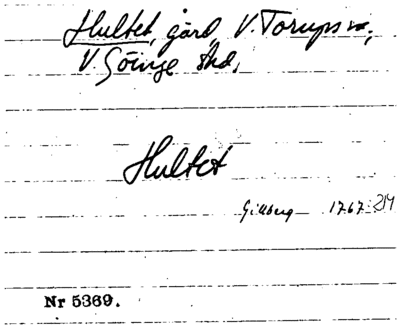 Hultet, gård, V. Torups sn,
V. Göinge hd,
Hultet
Gillberg 1767: 214
Nr 5369.